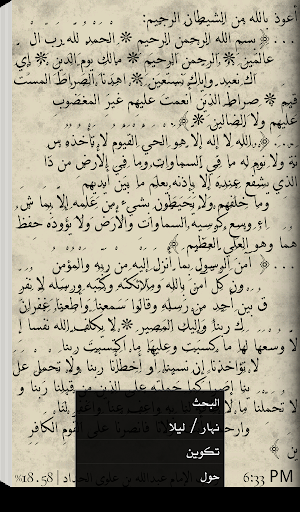 أعوذ بالله من الشيطان الرجيم:
... ﴿ بسم الله الرحمن الرحيم ❊ الحمد لله رب ال
عالمين ❊ الرحمن الرحيم ❊ مالك يوم الدين ❊ إي
اك نعبد وإياك نستعين ❊ اهدنا الصراط المست
قيم ❊ صراط الذين أنعمت عليهم غير المغضوب
عليهم ولا الضالين ❊ ﴾.
... ﴿ الله لا إله إلا هو الحي القيوم لا تأخذه س
نة ولا نوم له ما في السماوات وما في الأرض من ذا
الذي يشفع عنده إلا بإذنه يعلم ما بين أيديهم
وما خلفهم ولا يحيطون بشيء من علمه إلا بما ش
اء وسع كرسيه السماوات والأرض ولا يؤوده حفظ
هما وهو العلي العظيم ﴾
... ﴿ آمن الرسول بما أنزل إليه من ربه والمؤمن
ون كل آمن بالله وملائكته وكتبه ورسله لا نفر
ق بين أحد من رسله وقالوا سمعنا وأطعنا غفران
ك ربنا وإليك المصير ❊ لا يكلف الله نفسا إ
لا وسعها لها ما كسبت وعليها ما اكتسبت ربنا
لا تؤاخذنا إن نسينا أو أخطأنا ربنا ولا تحمل عل
حملته على الذين من قبلنا ربنا و
لا تحملنا
وارحمنا
القوم الكافر
ين ﴾
البحث
نهار/ ليلا
تكوين
حول
%18.58 | الإمام عبدالله بن علوي الحداد
6:33 PM